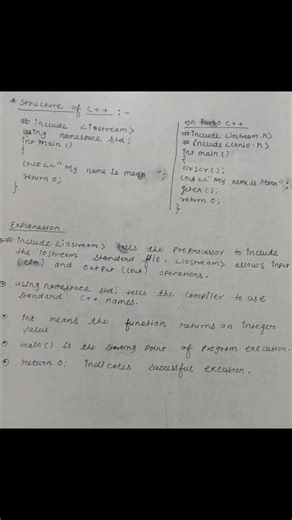 * Structure of C++ :-
# include <iostream>
using namespace std;
int main ()
{
cout<<" My name is
return 0;
}
in Turbo C++
#include <iostream.h>
# include <conio.h>
int main ()
{
clrscr();
cout<<" My name is
getch ();
return 0;
}
Explanation
# include <iostream> tells the preprocessor to include
the iostream standard file. <iostream> allows input
(cin) and output (cout) operations.
using namespace std; tells the compiler to use
standard C++ names.
int means the function returns an integer
value
main() is the starting point of program execution.
return 0; indicates successful execution.